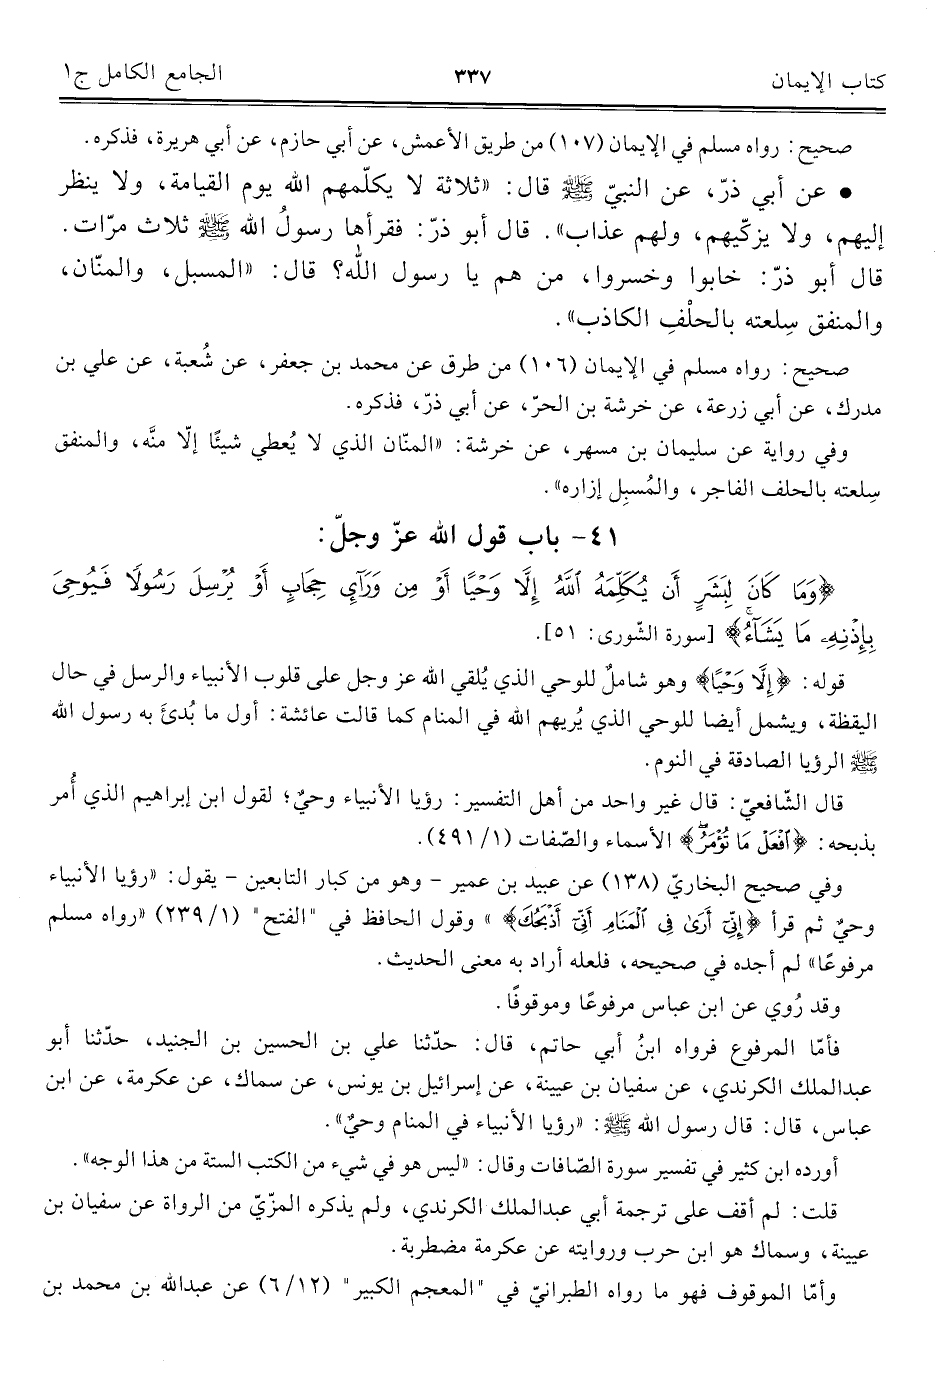 كتاب الإيمان ٣٣٧ الجامع الكامل ج١
صحيح: رواه مسلم في الإيمان (١٠٧) من طريق الأعمش، عن أبي حازم، عن أبي هريرة، فذكره.
• عن أبي ذرّ، عن النبيّ ﷺ قال: «ثلاثة لا يكلّمهم الله يوم القيامة، ولا ينظر
إليهم، ولا يزكّيهم، ولهم عذاب». قال أبو ذرّ: فقرأها رسولُ الله ﷺ ثلاث مرّات.
قال أبو ذرّ: خابوا وخسروا، من هم يا رسول الله؟ قال: «المسبل، والمنّان،
والمنفق سِلعته بالحلْفِ الكاذب».
صحيح: رواه مسلم في الإيمان (١٠٦) من طرق عن محمد بن جعفر، عن شُعبة، عن علي بن
مدرك، عن أبي زرعة، عن خرشة بن الحرّ، عن أبي ذرّ، فذكره.
وفي رواية عن سليمان بن مسهر، عن خرشة: «المنّان الذي لا يُعطي شيئًا إلّا منَّه، والمنفق
سِلعته بالحلف الفاجر، والمُسبِل إزاره».
٤١- باب قول الله عزّ وجلّ:
﴿وَمَا كَانَ لِبَشَرٍ أَن يُكَلِّمَهُ ٱللَّهُ إِلَّا وَحْيًا أَوْ مِن وَرَآئِ حِجَابٍ أَوْ يُرْسِلَ رَسُولًا فَيُوحِىَ
بِإِذْنِهِۦ مَا يَشَآءُۚ﴾ [سورة الشّورى: ٥١].
قوله: ﴿إِلَّا وَحْيًا﴾ وهو شاملٌ للوحي الذي يُلقي الله عز وجل على قلوب الأنبياء والرسل في حال
اليقظة، ويشمل أيضا للوحي الذي يُريهم الله في المنام كما قالت عائشة: أول ما بُدئ به رسول الله
ﷺ الرؤيا الصادقة في النوم.
قال الشّافعيّ: قال غير واحد من أهل التفسير: رؤيا الأنبياء وحيٌ؛ لقول ابن إبراهيم الذي أُمر
بذبحه: ﴿ٱفْعَلْ مَا تُؤْمَرُۖ﴾ الأسماء والصّفات (١/ ٤٩١).
وفي صحيح البخاريّ (١٣٨) عن عبيد بن عمير - وهو من كبار التابعين - يقول: «رؤيا الأنبياء
وحيٌ ثم قرأ ﴿إِنِّىٓ أَرَىٰ فِى ٱلْمَنَامِ أَنِّىٓ أَذْبَحُكَ﴾ » وقول الحافظ في "الفتح" (١/ ٢٣٩) «رواه مسلم
مرفوعًا» لم أجده في صحيحه، فلعله أراد به معنى الحديث.
وقد رُوي عن ابن عباس مرفوعًا وموقوفًا.
فأمّا المرفوع فرواه ابنُ أبي حاتم، قال: حدّثنا علي بن الحسين بن الجنيد، حدّثنا أبو
عبدالملك الكرندي، عن سفيان بن عيينة، عن إسرائيل بن يونس، عن سماك، عن عكرمة، عن ابن
عباس، قال: قال رسول الله ﷺ: «رؤيا الأنبياء في المنام وحيٌ».
أورده ابن كثير في تفسير سورة الصّافات وقال: «ليس هو في شيء من الكتب الستة من هذا الوجه».
قلت: لم أقف على ترجمة أبي عبدالملك الكرندي، ولم يذكره المزّيّ من الرواة عن سفيان بن
عيينة، وسماك هو ابن حرب وروايته عن عكرمة مضطربة.
وأمّا الموقوف فهو ما رواه الطبرانيّ في "المعجم الكبير" (١٢/ ٦) عن عبدالله بن محمد بن